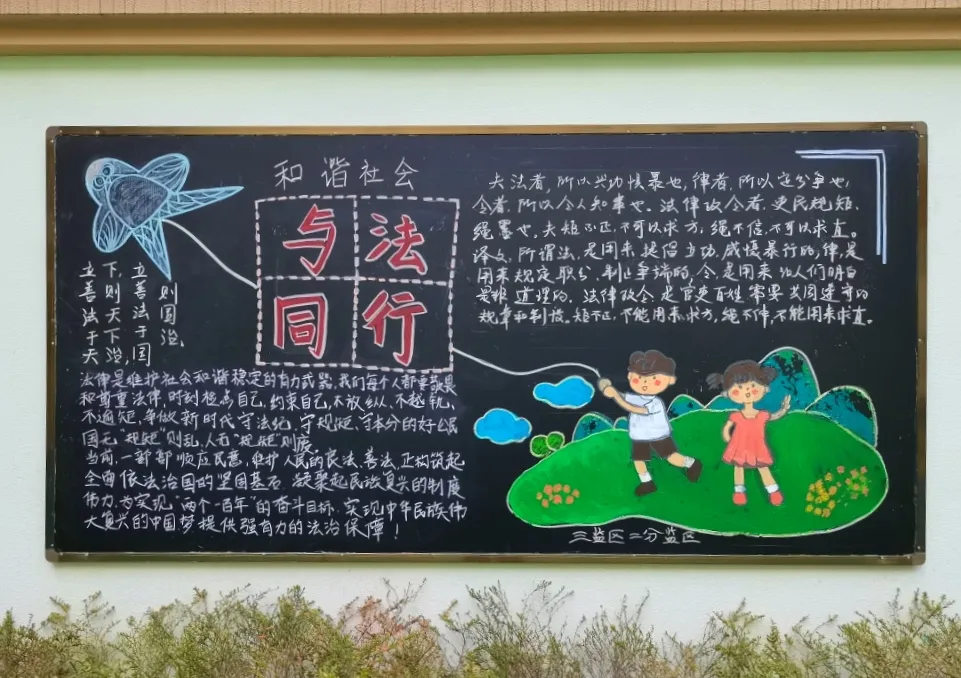 和谐社会
与法
同行
立善法于天
下,则天下治,
立善法于国
则国治。
夫法者,所以兴功惧暴也,律者,所以定分争也,
令者,所以令人知事也。法律政令者,吏民规矩、
绳墨也。夫矩不正,不可以求方;绳不信,不可以求直。
译文,所谓法,是用来提倡立功,威慑暴行的,律,是
用来规定职分、制止争端的,令,是用来让人们明白
是非道理的。法律政令是官吏百姓需要共同遵守的
规章和制度。矩不正,不能用来求方,绳不伸,不能用来求直。
法律是维护社会和谐稳定的有力武器,我们每个人都要敬畏
和尊重法律,时刻检点自己,约束自己,不放纵、不越轨、
不逾矩,争做新时代守法纪、守规矩、守本分的好公民
国无"规矩"则乱,人无"规矩"则废。
当前,一部部顺应民意,维护人民的良法、善法,正构筑起
全面依法治国的坚固基石,凝聚起民族复兴的制度
伟力,为实现"两个一百年"的奋斗目标,实现中华民族伟
大复兴的中国梦提供强有力的法治保障!
三监区二分监区